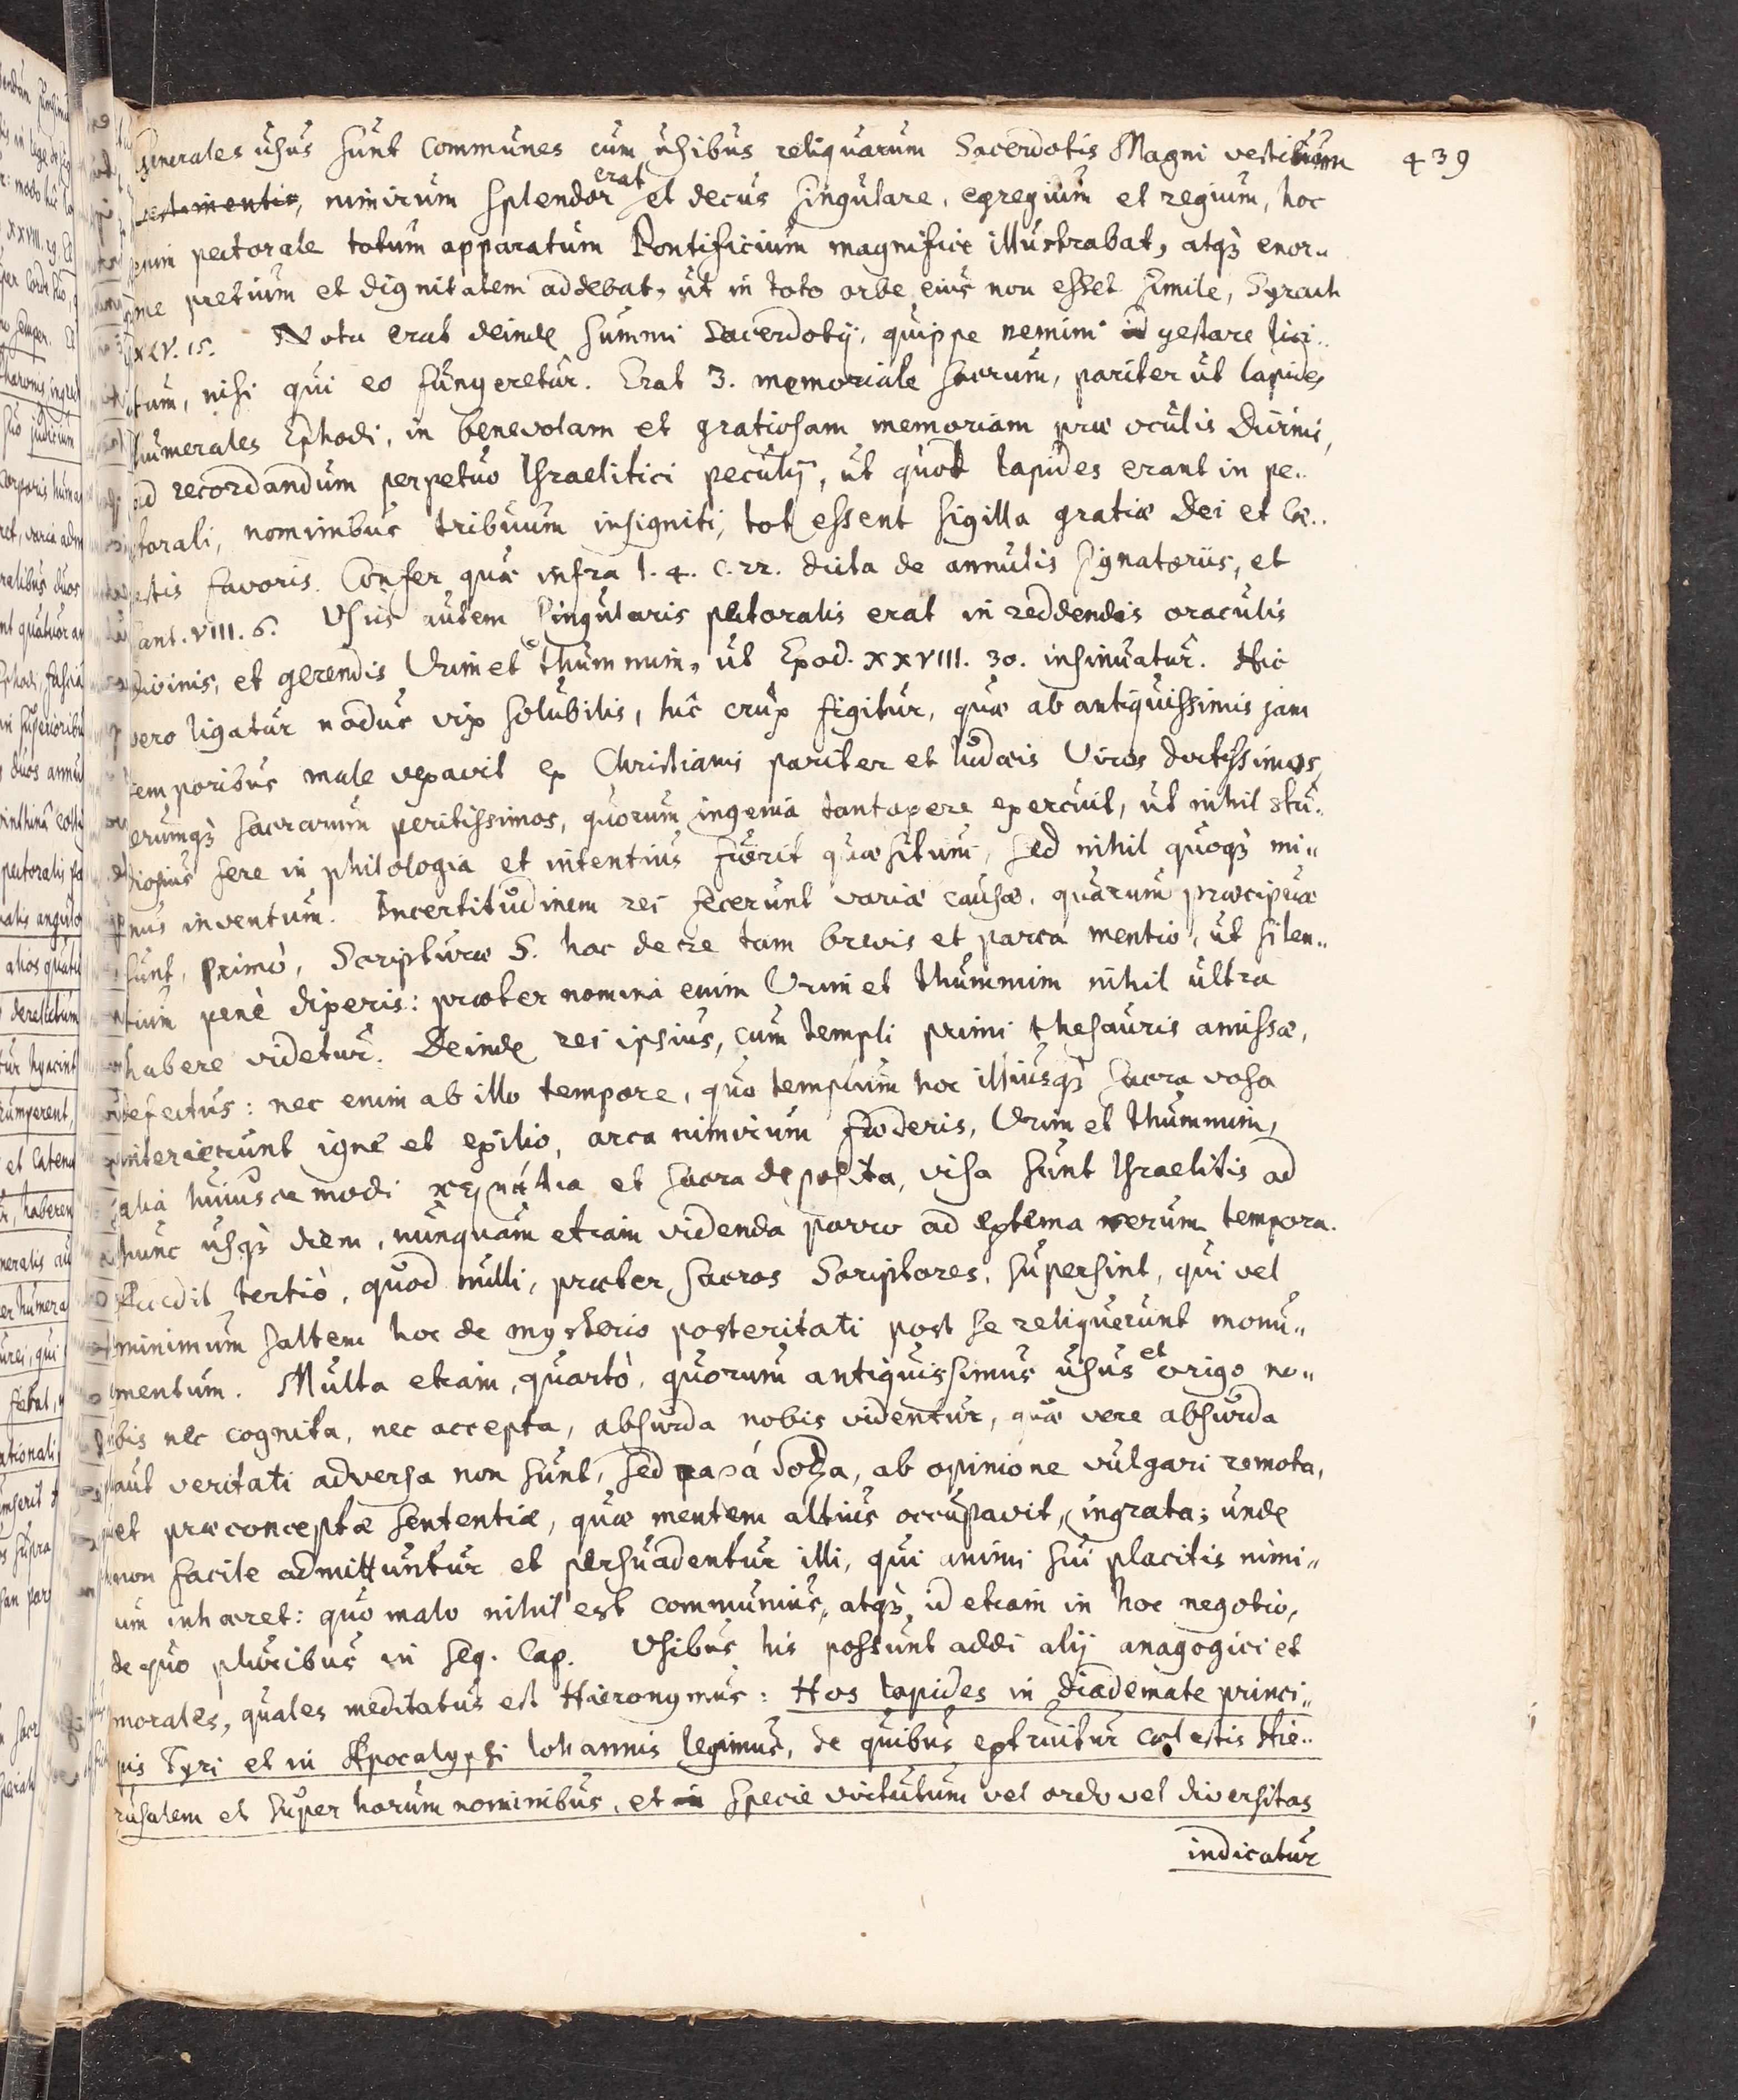 439
Generales usus sunt communes cum usibus reliquarum Sacerdotis Magni vestium
vestimentis, nimirum splendor erat et decus singulare, egregium et regium, hoc
enim pectorale totum apparatum Pontificium magnifice illustrabat, atqȝ enor„
me pretium et dignitatem addebat, ut in toto orbe eius non esset simile, Syrach
XLV. 15. Nota erat deinde summi Sacerdotij, quippe nemini id gestare lici„
tum, nisi qui eo fungeretur. Erat 3. memoriale sacrum, pariter ut lapides
humerales Ephodi, in benevolam et gratiosam memoriam præ oculis Divini,
ad recordandum perpetuo Israelitici peculij, ut quot lapides erant in pe„
ctorali, nominibus tribuum insigniti, tot essent sigilla gratiæ Dei et cæ„
lestis favoris. Confer quæ infra l. 4. c. 22. dicta de annulis signatoriis, et
Cant. VIII. 6. Usus autem singularis pectoralis erat in reddendis oraculis
divinis, et gerendis Urim et Thummim, ut Exod. XXVIII. 30. insinuatur. Hic
vero ligatur nodus vix solubilis, hic crux figitur, quæ ab antiquissimis jam
temporibus male vexavit ex Christianis pariter et Iudæis Viros doctissimos,
rerumqȝ sacrarum peritissimos, quorum ingenia tantopere exercuit, ut nihil stu„
diosius fere in philologia et intentius fuerit quæsitum, sed nihil quoqȝ mi„
nus inventum. Incertitudinem rei fecerunt variæ causæ, quarum præcipuæ
sunt, primò, Scripturæ S. hac de re tam brevis et parca mentio, ut silen„
tium penè dixeris: præter nomina enim Urim et Thummim nihil ultra
habere videtur. Deinde rei ipsius, cum templi primi thesauris amissæ,
defectus: nec enim ab illo tempore, quo templum hoc illiusqȝ sacra vasa
interierunt igne et exilio, arca nimirum fœderis, Urim et Thummim,
alia huiuscemodi κειμήλια et sacra deposita, visa sunt Israelitis ad
hunc usqȝ diem, nunquam etiam videnda porro ad extema rerum tempora.
Accedit tertiò, quod nulli, præter sacros Scriptores, supersint, qui vel
minimum saltem hoc de mysterio posteritati post se reliquerunt monu„
mentum. Multa etiam, quartò, quorum antiquissimus usus et origo no„
bis nec cognita, nec accepta, absurda nobis videntur, quæ vere absurda
aut veritati adversa non sunt, sed παράδοξα, ab opinione vulgari remota,
et præconceptæ sententiæ, quæ mentem altius occupavit, ingrata; unde
non facile admittuntur et persuadentur illi, qui animi sui placitis nimi„
um inhæret: quo malo nihil est communius, atqȝ id etiam in hoc negotio,
de quo pluribus in seq. Cap. Usibus his possunt addi alij anagogici et
morales, quales meditatus est Hieronymus: Hos lapides in diademate princi„
pis Tyri et in Apocalypsi Iohannis legimus, de quibus extruitur cœlestis Hie„
rusalem et super horum nominibus, et in specie virtutum vel ordo vel diversitas
indicatur